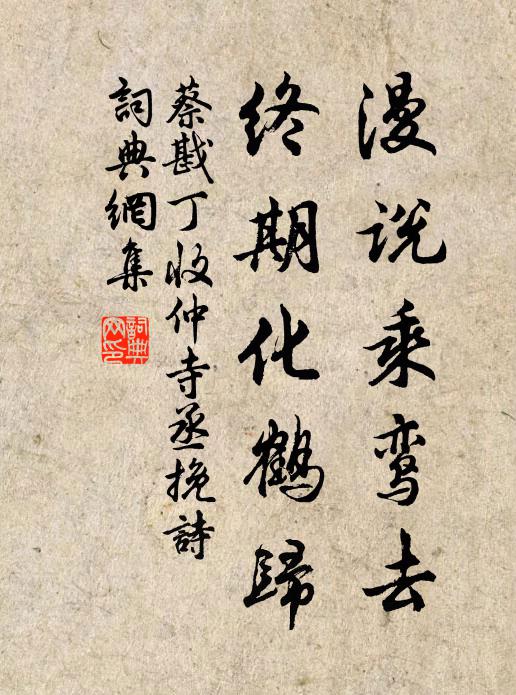 漫说乘鸾去
终期化鹤歸
蔡戡丁收仲寺丞挽詩
詞典網集
詞典網印